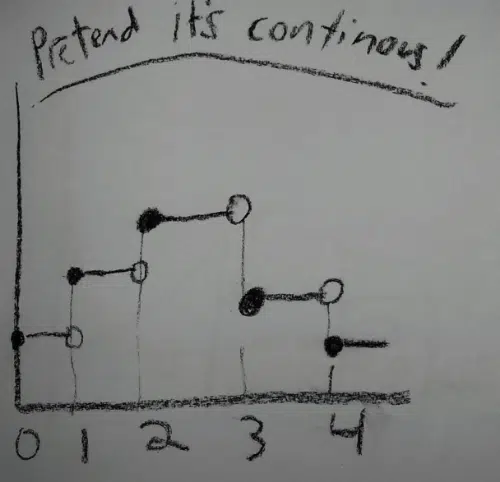 Pretend it's continous!
0 1 2 3 4